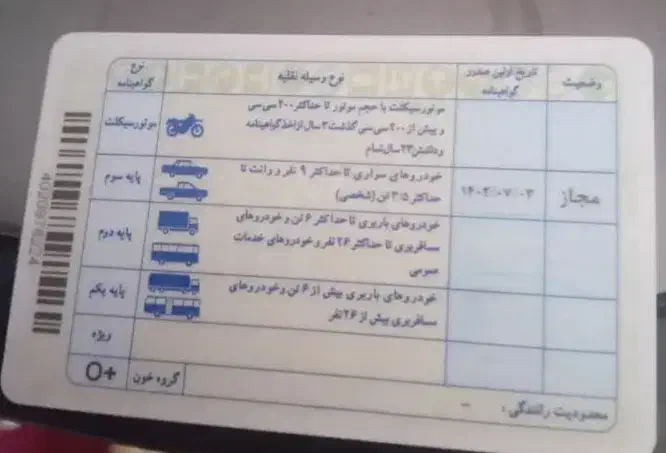 نوع گواهینامه	نوع وسیله نقلیه	تاریخ اولین صدور گواهینامه	وضعیت
موتورسیکلت	موتورسیکلت با حجم موتور تا حداکثر ۲۰۰ سی سی
و بیش از ۲۰۰ سی سی گذشت ۳ سال از اخذ گواهینامه
و داشتن ۲۳ سال تمام
پایه سوم	خودروهای سواری تا حداکثر ۹ نفر و وانت تا
حداکثر ۳/۵ تن (شخصی)	۱۴۰۲/۰۷/۰۳	مجاز
پایه دوم	خودروهای باربری تا حداکثر ۶ تن و خودروهای
مسافربری تا حداکثر ۲۶ نفر و خودروهای خدمات
عمومی
پایه یکم	خودروهای باربری بیش از ۶ تن و خودروهای
مسافربری بیش از ۲۶ نفر
ویژه
O+	گروه خون	محدودیت رانندگی : --